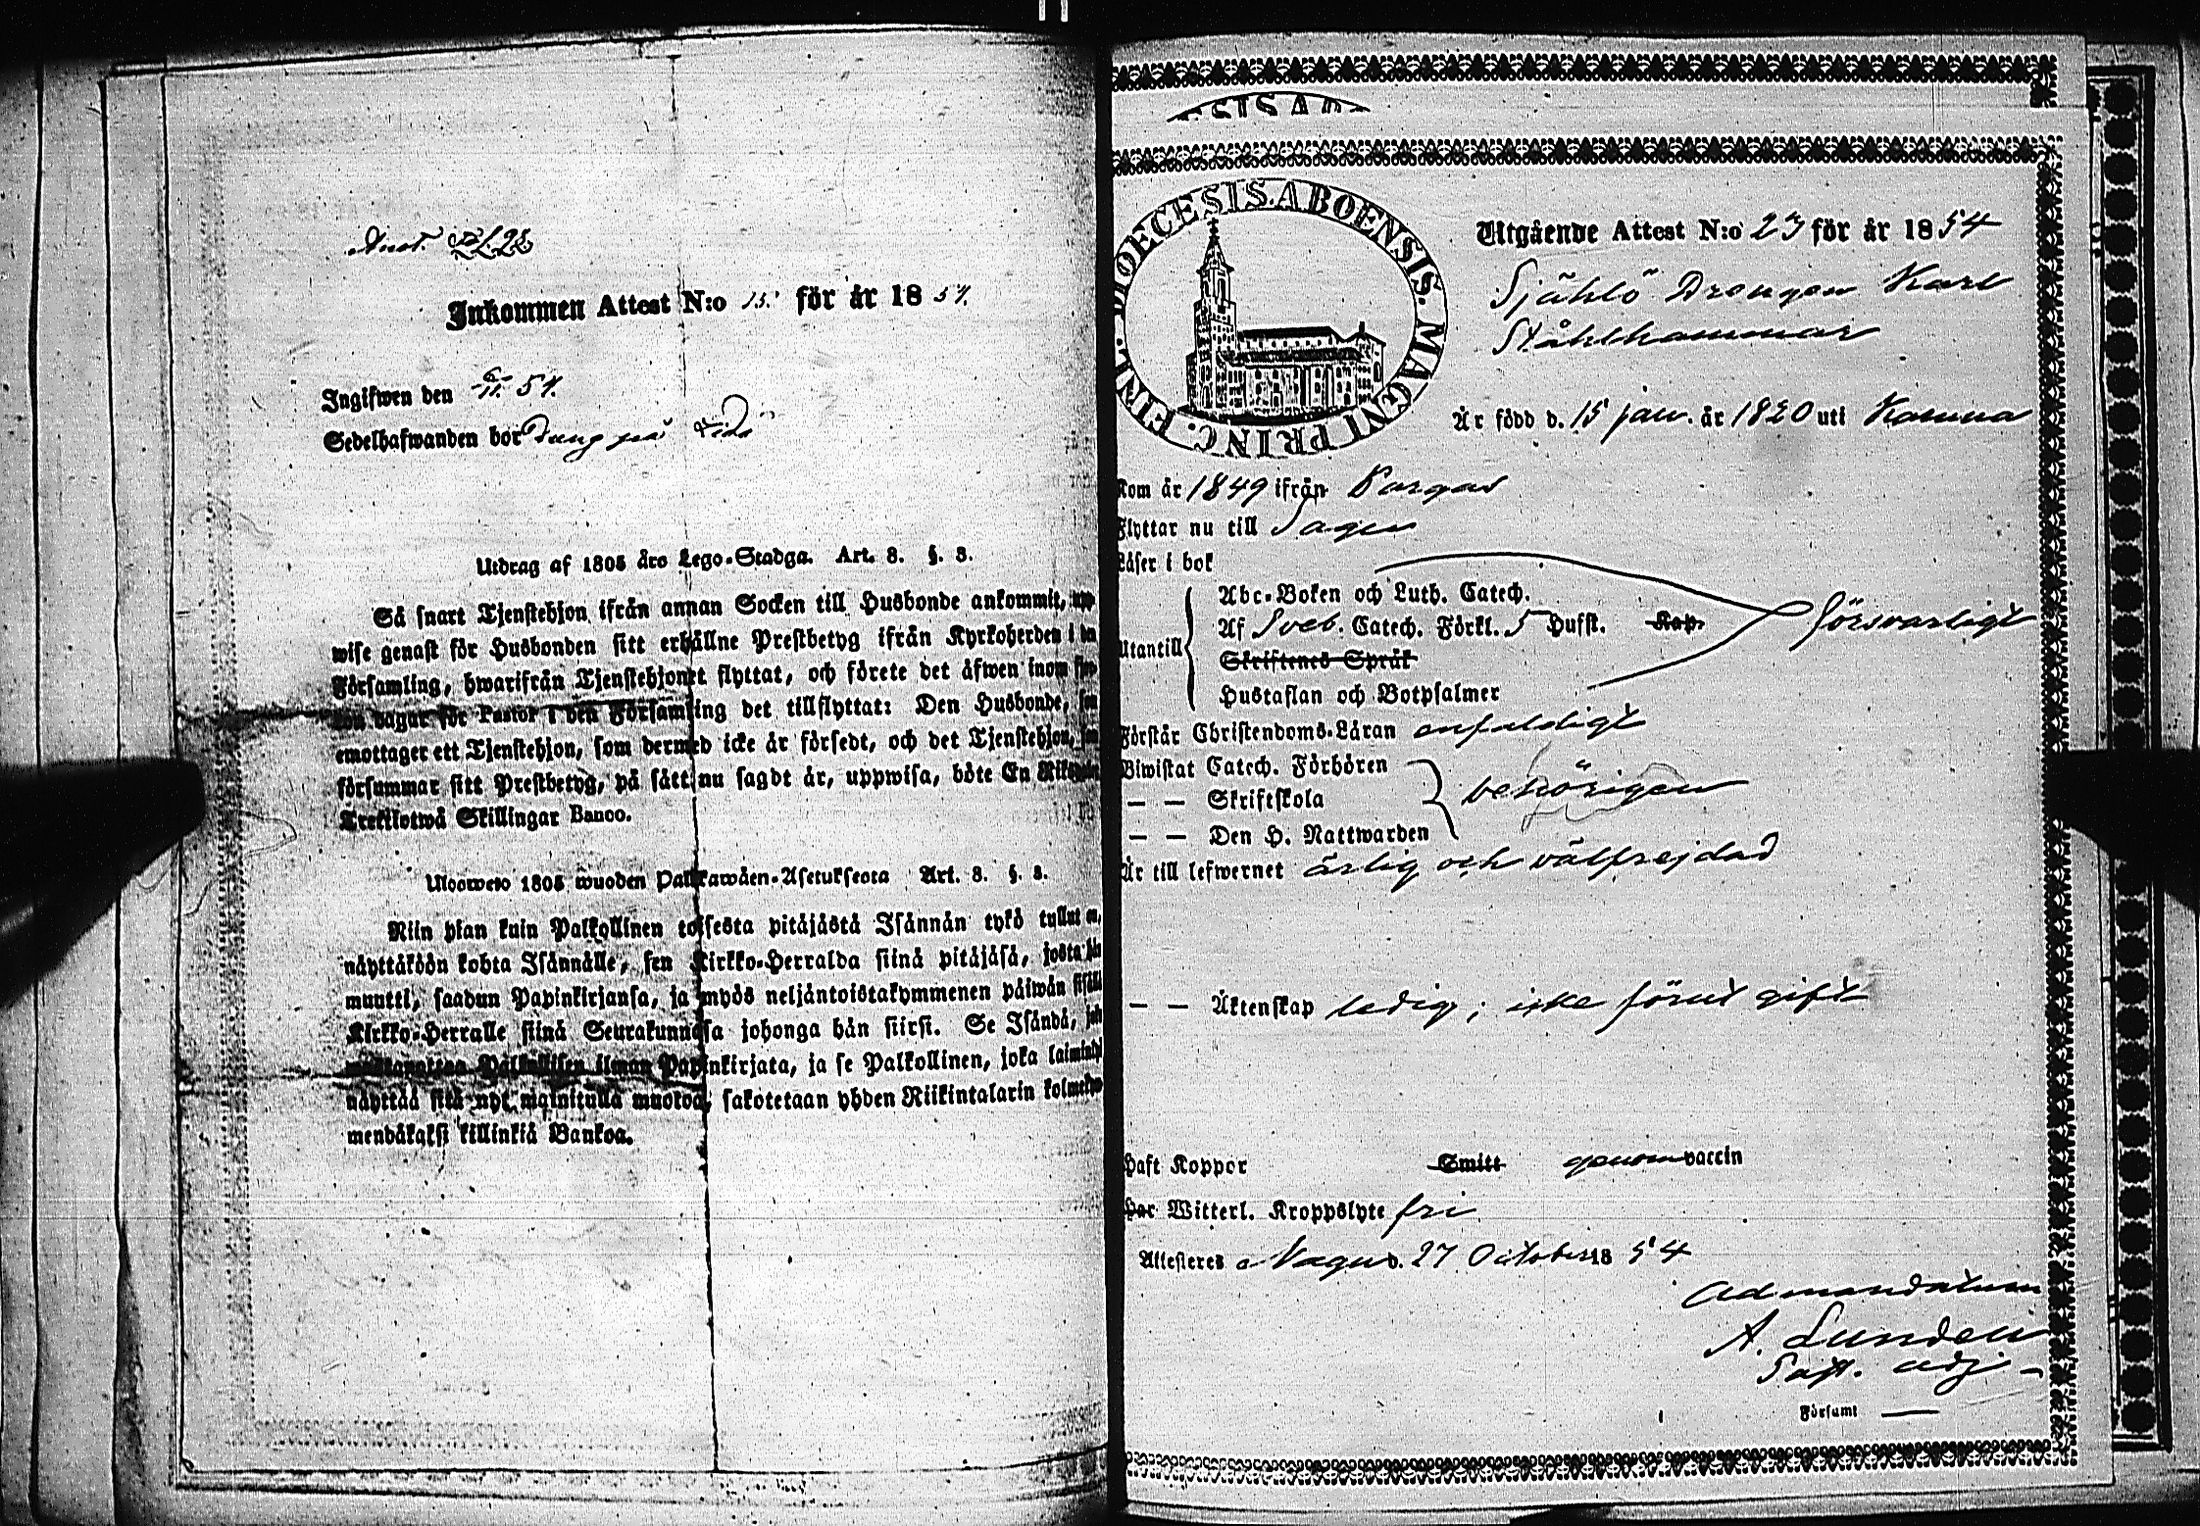 Inkommen Attest N:o 15. för år 1854.
Ingifwen den 6/11. 54.
Sedelhafwanden bor Dräng på
Utdrag af 1805 års Lego-Stadga. Art. 8. §. 3.
Så snart Tjenstehjon ifrån annan Socken till Husbonde ankommit, upp-
wise genast för Husbonden sitt erhållne Prestbetyg ifrån Kyrkoherden i den
Församling, hwarifrån Tjenstehjonet flyttat, och förete det äfwen inom
dagar för Pastor i den Församling det tillflyttat: Den Husbonde, som
emottager ett Tjenstehjon, som dermed icke är försedt, och det Tjenstehjon, som
försummar sitt Prestbetyg, på sätt nu sagdt är, uppwisa, böte En Riksdaler
Trettiotwå Skillingar Banco.
Ulosweto 1805 wuoden Palkawäen-Asetuksesta Art. 8. §. 3.
Niin pian kuin Palkollinen toisesta pitäjästä Isännän tykö tullut on,
näyttäköön kohta Isännälle, sen Kirkko-Herralda siinä pitäjäsä, josta hän
muutti, saadun Papinkirjansa, ja myös neljäntoistakymmenen päiwän sisällä
Kirkko-Herralle siinä Seurakunnasa johonga hän siirsi. Se Isändä, joka
Palkollisen ilman Papinkirjata, ja se Palkollinen, joka laiminlyö
näyttää sitä nyt mainitulla muotoa, sakotetaan yhden Riikintalarin kolmekym-
mendäkaksi killinkiä Bankoa.
SIS.AB
DIOECESIS.ABOENSIS.MAGNI PRINC.FINL.
Utgående Attest N:o 23 för år 1854
Själlö Drengen Karl
Ståhlhammar
Är född d. 15 jan. år 1820 uti Korma
Kom år 1849 ifrån Pargas
Flyttar nu till Sagu
Läser i bok
Abc-Boken och Luth. Catech.
Af Sveb. Catech. Förkl. 5 Hufst. Kap.
Utantill
Skriftenes Språk
försvarligt
Hustaflan och Botpsalmer
Förstår Christendoms-Läran enfaldigt
Biwistat Catech. Förhören
— — Skriftskola
behörigen
— — Den H. Nattwarden
Är till lefwernet ärlig och välfrejdad
— — Äktenskap ledig; icke förut gift
Haft Koppor Smitt genom vaccin
Har Witterl. Kroppslyte fri
Attesteres Nagu d. 27 October 1854
Ad mandatum
A. Lundell
Past. adj.
Församt —